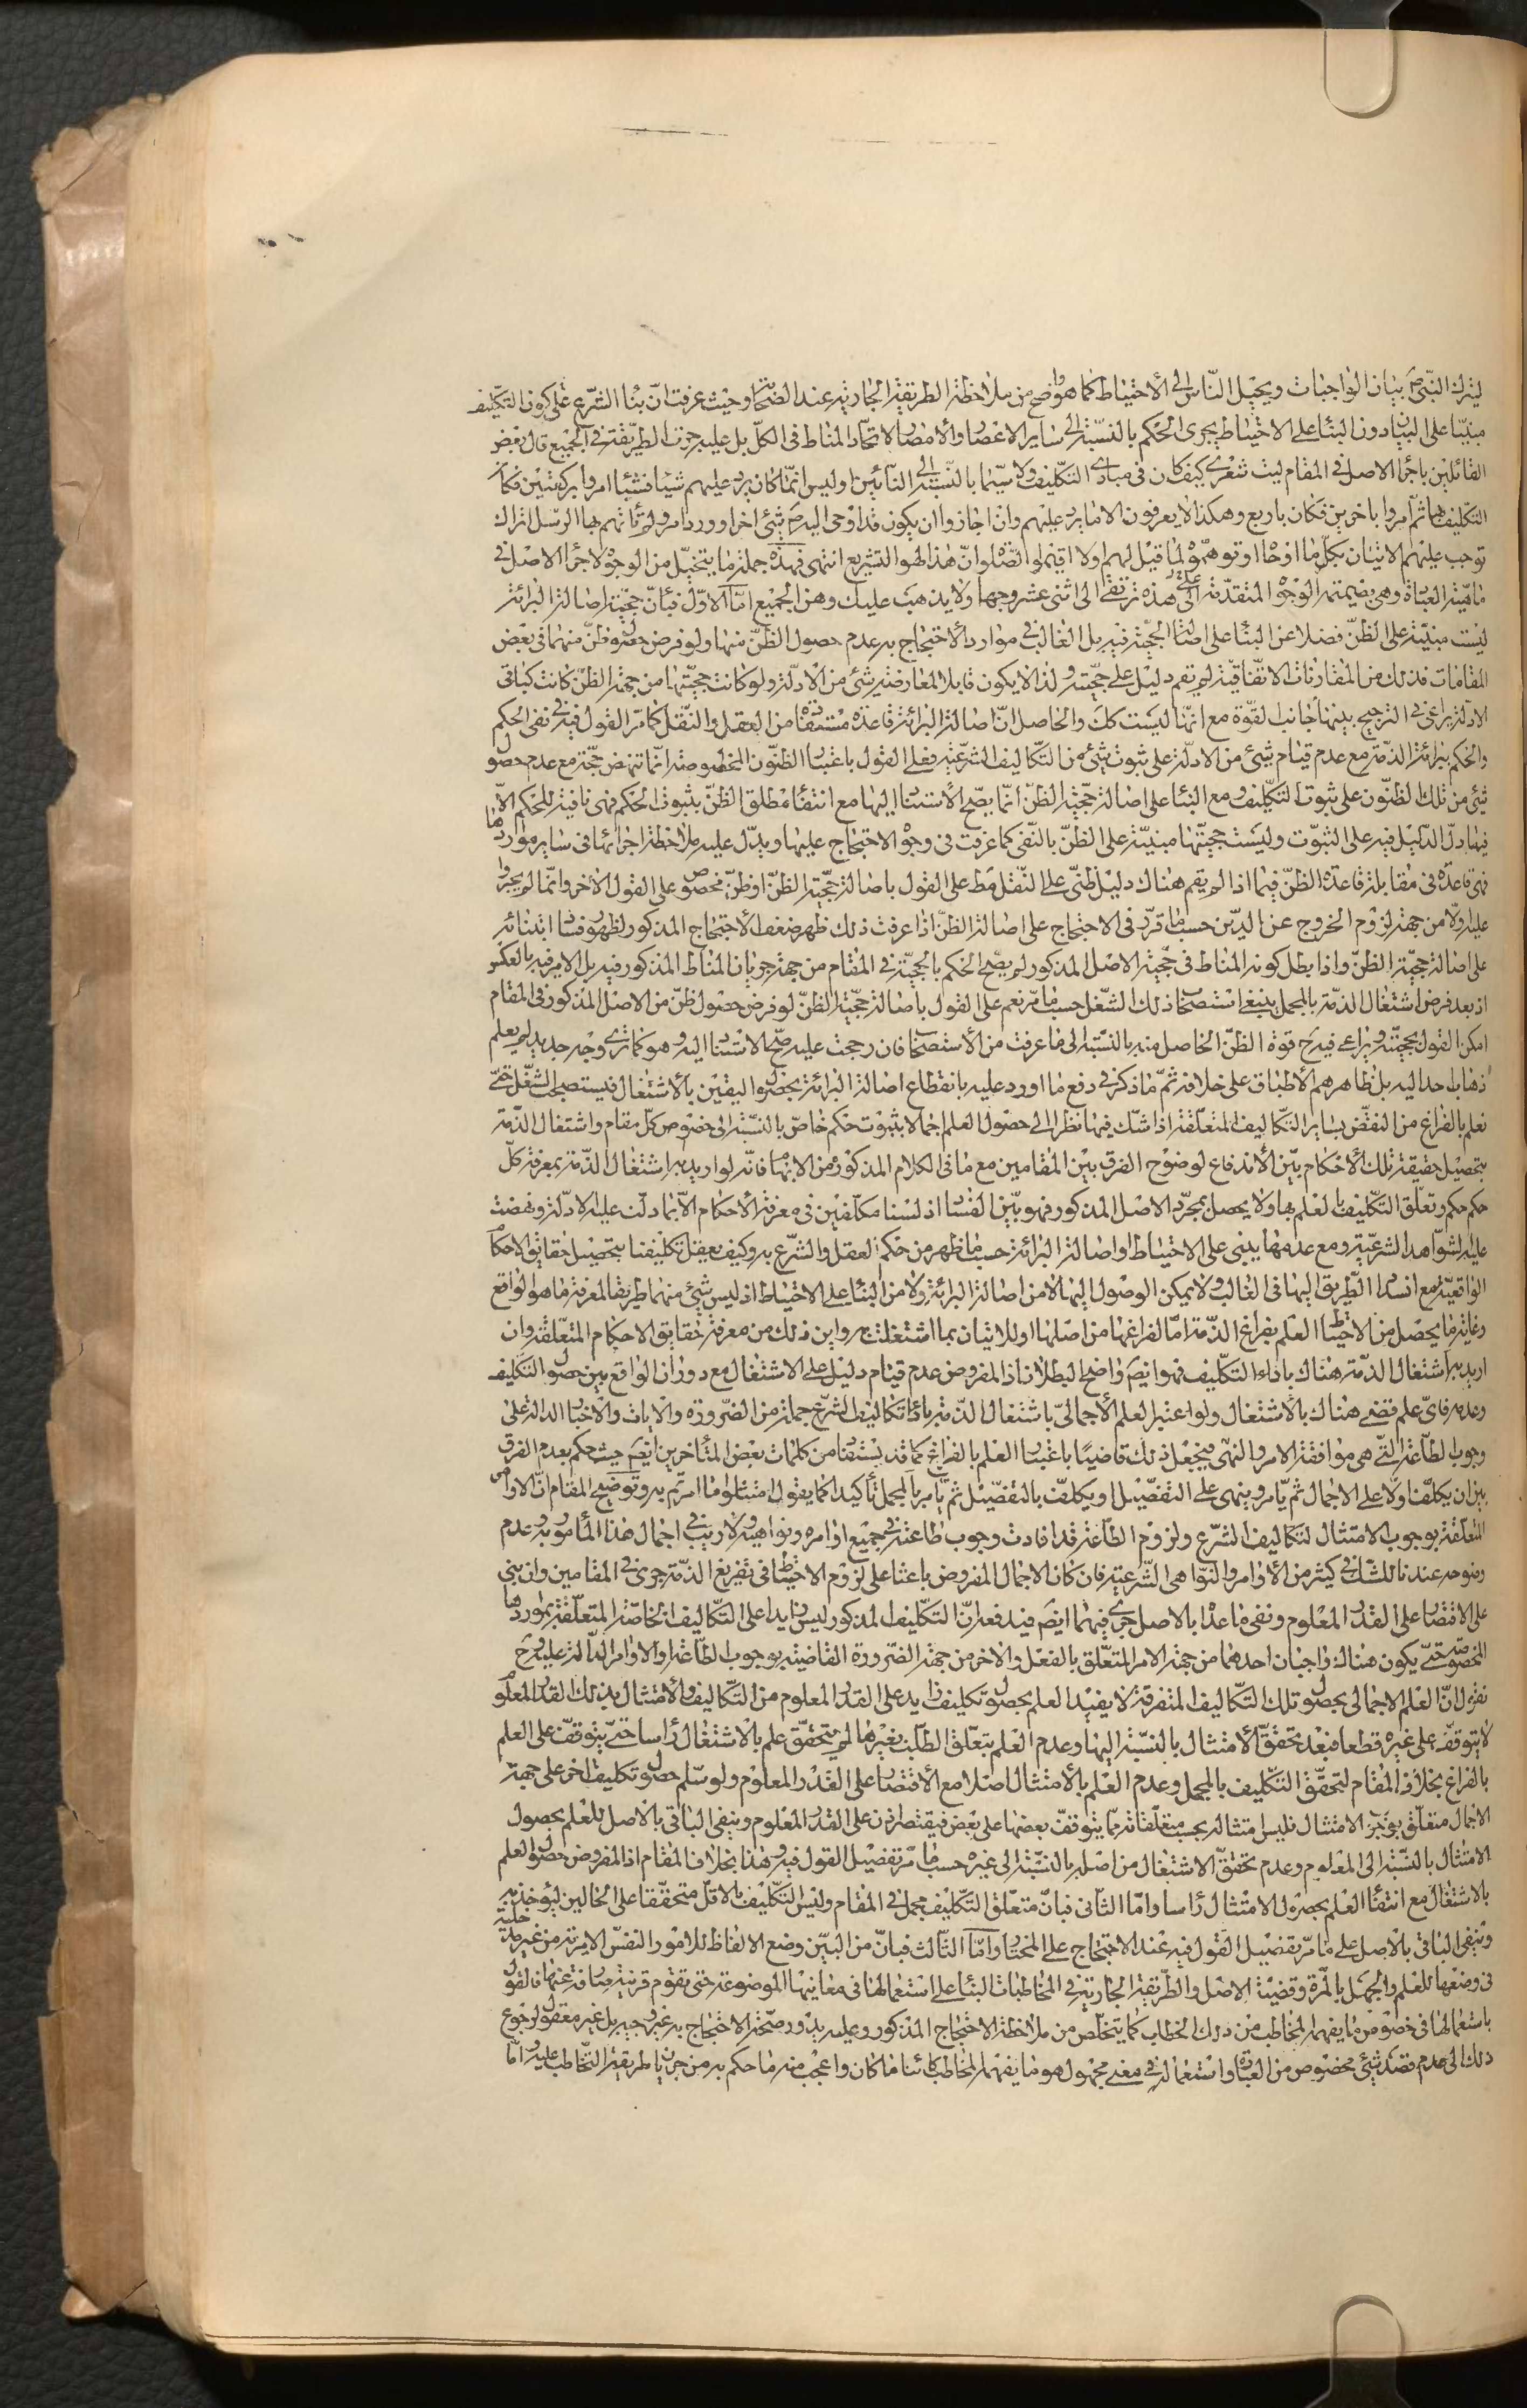 ليترك النبي ص بيان الواجبات ويحيل الناس الى الأحتياط كما هو واضح من ملاحظة الطريقة الجارية عند الصحابة وحيث عرفت ان بناء الشرع على كون التكليف
مبنيا على البيان دون البناء على الاحتياط يجرى الحكم بالنسبة الى ساير الاعصار والأمصار لاتحاد المناط في الكل بل عليه جرت الطريقة في الجميع قال بعض
القائلين باجراء الاصل في المقام ليت شعرى كيف كان في مبادى التكليف ولا سيما بالنسبة الى النائين او ليس انما كان يرد عليهم شيئا فشيئا امروا بركعتين فكان
التكليف بها ثم امروا باخرين فكان باربع وهكذا لا يعرفون الا ما يرد عليهم وان اجازوا ان يكون قد اوحى اليه ص بشئ اخر او ورد امر ولم تاتهم بها الرسل اتراك
توجب عليهم الاتيان بكل ما اوحا او توهموه لما قيل لهم ولا اقيموا الصلوة ان هذا لهو التشريع انتهى فهذه جملة ما يتخيل من الوجوه لاجراء الاصل في
ماهية العبادة وهى بضميمة الوجوه المتقدمة على هذه ترتقى الى اثنى عشر وجها ولا يذهب عليك وهن الجميع اما الاول فبان حجية اصالة البرائة
ليست مبنية على الظن فضلا عن البناء على اصالة الحجية فيه بل الغالب في موارد الاحتجاج به عدم حصول الظن منها ولو فرض حصول ظن منها في بعض
المقامات فذلك من المقارنات الاتفاقية لم يقم دليل على حجيته ولذا لا يكون قابلا لمعارضة شئ من الادلة ولو كانت حجيتها من جهة الظن كانت كباقى
الادلة يراعى في الترجيح بينها جانب القوة مع انها ليست كك والحاصل ان اصالة البرائة قاعدة مستفادة من العقل والنقل كما مر القول فيه في نفى الحكم
والحكم ببرائة الذمة مع عدم قيام شئ من الادلة على ثبوت شئ من التكاليف الشرعية فعلى القول باعتبار الظنون المخصوصة انما تنهض حجة مع عدم حصول
شئ من تلك الظنون على ثبوت التكليف ومع البناء على اصالة حجية الظن انما يصح الأستناد اليها مع انتفاء مطلق الظن بثبوت الحكم فهى نافية للحكم الا
فيما دل الدليل فيه على الثبوت وليست حجيتها مبنية على الظن بالنفى كما عرفت في وجوه الاحتجاج عليها ويدل عليه ملاحظة اجرائها في ساير مواردها
فهى قاعدة في مقابلة قاعدة الظن فيما اذا لم يقم هناك دليل ظنى على النقل مط على القول باصالة حجية الظن او ظن مخصوص على القول الأخر وانما لم يجروا
عليه اولا من جهة لزوم الخروج عن الدين حسبما قرر في الاحتجاج على اصالة الظن اذا عرفت ذلك ظهر ضعف الأحتجاج المذكور لظهور فساد ابتنائه
على اصالة حجية الظن واذا بطل كونه المناط في حجية الاصل المذكور لم يصح الحكم بالحجية في المقام من جهة جريان المناط المذكور فيه بل الامر فيه بالعكس
اذ بعد فرض اشتغال الذمة بالمجمل ينبغى استصحاب ذلك الشغل حسبما مر نعم على القول باصالة حجية الظن لو فرض حصول ظن من الاصل المذكور في المقام
امكن القول بحجيته ويراعى فيه ح قوة الظن الحاصل منه بالنسبة الى ما عرفت من الأستصحاب فان رجحت عليه صح الاستناد اليه وهو كما ترى وجه جديد لم يعلم
ذهاب احد اليه بل ظاهرهم الأطباق على خلافه ثم ما ذكر في دفع ما اورد عليه بانقطاع اصالة البرائة بحصول اليقين بالأشتغال فيستصحب الشغل حتى
نعلم بالفراغ من النقض بساير التكاليف المتعلقة اذا شك فيها نظرا الى حصول العلم اجمالا بثبوت حكم خاص بالنسبة الى خصوص كل مقام واشتغال الذمة
بتحصيل حقيقة تلك الأحكام بين الأندفاع لوضوح الفرق بين المقامين مع ما في الكلام المذكور من الابهام فانه لو اريد به اشتغال الذمة بمعرفة كل
حكم حكم وتعلق التكليف بالعلم بها ولا يحصل بمجرد الاصل المذكور فهو بين الفساد اذ لسنا مكلفين في معرفة الأحكام الا بما دلت عليه الادلة ونهضت
عليه الشواهد الشرعية ومع عدمها يبنى على الاحتياط او اصالة البرائة حسبما ظهر من حكم العقل والشرع به وكيف يعقل تكليفنا بتحصيل حقايق الاحكام
الواقعية مع انسداد الطريق اليها في الغالب ولا يمكن الوصول اليها لا من اصالة البرائة ولا من البناء على الاحتياط اذ ليس شئ منهما طريقا لمعرفة ما هو الواقع
وغاية ما يحصل من الاحتياط العلم بفراغ الذمة اما لفراغها من اصلها او للاتيان بما اشتغلت به واين ذلك من معرفة حقايق الاحكام المتعلقة وان
اريد به اشتغال الذمة هناك باداء التكليف فهو ايضا واضح البطلان اذ المفروض عدم قيام دليل على الاشتغال مع دوران الواقع بين حصول التكليف
وعدمه فاى علم قضى هناك بالأشتغال ولو اعتبر العلم الأجمالى باشتغال الذمة باداء تكاليف الشرع جملة من الضرورة والايات والاخبار الدالة على
وجوب الطاعة التى هى موافقة الامر والنهى فيجعل ذلك قاضيا باعتبار العلم بالفراغ كما قد يستفاد من كلمات بعض المتأخرين ايضا حيث حكم بعدم الفرق
بين ان يكلفنا اولا على الاجمال ثم يامر وينهى على التفصيل او يكلف بالتفصيل ثم يامر بالمجمل تأكيدا كما يقول امتثلوا ما امرتم به وتوضيح المقام ان الاوامر
المتعلقة بوجوب الامتثال لتكاليف الشرع ولزوم الطاعة قد افادت وجوب طاعته في جميع اوامره ونواهيه ولا ريب في اجمال هذا المأمور به وعدم
وضوحه عندنا للشك في كثير من الأوامر والنواهى الشرعية فان كان الاجمال المفروض باعثا على لزوم الاحتياط في تفريغ الذمة جرى في المقامين وان بنى
على الاقتصار على القدر المعلوم ونفى ما عداه بالاصل جرى فيهما ايضا فيدفعه ان التكليف المذكور ليس زايدا على التكاليف الخاصة المتعلقة بمواردها
المخصوصة حتى يكون هناك واجبان احدهما من جهة الامر المتعلق بالفعل والاخر من جهة الضرورة القاضية بوجوب الطاعة والاوامر الدالة عليه وح
نقول ان العلم الاجمالى بحصول تلك التكاليف المتفرقة لا يفيد العلم بحصول تكليف زايد على القدر المعلوم من التكاليف والأمتثال بذلك القدر المعلوم
لا يتوقف على غيره قطعا فبعد تحقق الأمتثال بالنسبة اليها وعدم العلم بتعلق الطلب بغيرها لم يتحقق علم بالاشتغال رأسا حتى يتوقف على العلم
بالفراغ بخلاف المقام لتحقق التكليف بالمجمل وعدم العلم بالأمتثال اصلا مع الأقتصار على القدر المعلوم ولو سلم حصول تكليف اخر على جهة
الاجمال متعلق بوجوب الامتثال فليس امتثاله بحسب متعلقاته مما يتوقف بعضها على بعض فيقتصر اذن على القدر المعلوم وينفى الباقى بالاصل للعلم بحصول
الامتثال بالنسبة الى المعلوم وعدم تحقق الاشتغال من اصله بالنسبة الى غيره حسبما مر تفصيل القول فيه وهذا بخلاف المقام اذ المفروض حصول العلم
بالاشتغال مع انتفاء العلم بحصول الامتثال رأسا واما الثانى فبان متعلق التكليف مجمل في المقام وليس التكليف بالاقل متحققا على الحالين ليؤخذ به
وينفى الباقى بالاصل على ما مر تفصيل القول فيه عند الاحتجاج على المختار واما الثالث فبان من البين وضع الالفاظ للامور النفس الامرية من غير مدخلية
في وضعها للعلم والجهل بالمرة وقضية الاصل والطريقة الجارية في المخاطبات البناء على استعمالها في معانيها الموضوعة حتى يقوم قرينة صارفة عنها فالقول
باستعمالها في خصوص ما يفهمه المخاطب من ذلك الخطاب كما يتخلص من ملاحظة الاحتجاج المذكور وعليه يدور صحة الاحتجاج به غير وجيه بل غير معقول لرجوع
ذلك الى عدم قصد شئ مخصوص من العبارة واستعماله في معنى مجهول هو ما يفهمه المخاطب كائنا ما كان واعجب منه ما حكم به من جريان طريقة التخاطب عليه اما